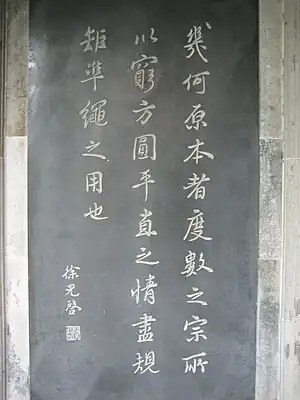 幾何原本者度數之宗所
以窮方圓平直之情盡規
矩準繩之用也
徐光啓